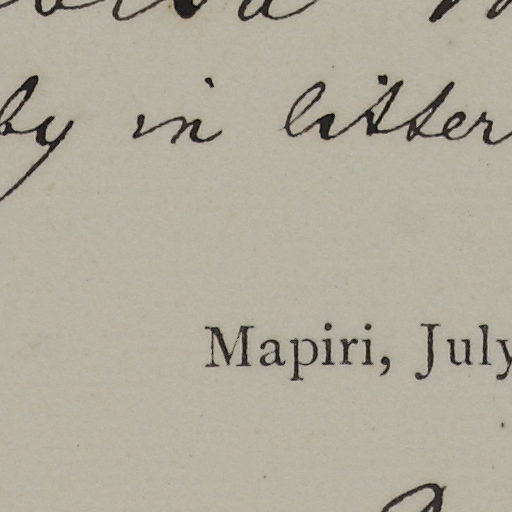 by in litter
Mapiri, July